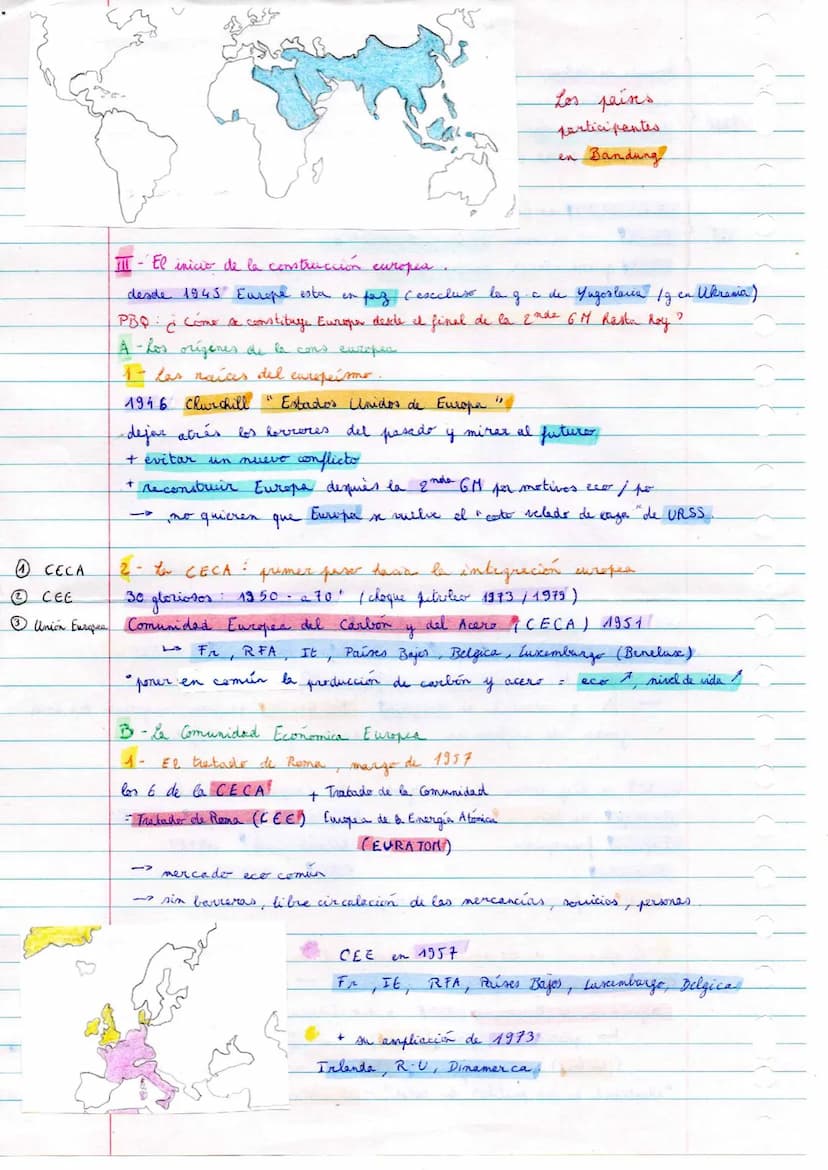 Los países
participantes
en Bandung
III - El inicio de la construcción europea.
desde 1945 Europe esta en paz (escluso la g.c de Yugoslavia / g en Ukrania)
PBQ: ¿Cómo se constituye Europa desde el final de la 2nde GM hasta hoy?
A - Los orígenes de la cons europea
1 - Las raíces del europeísmo.
1946 Churchill "Estados Unidos de Europa"
dejar atrás los horrores del pasado y mirar al futuro
+ evitar un nuevo conflicto
+ reconstruir Europa después la 2nde GM por motivos eco / po
→ no quieren que Europa se vuelve el "coto velado de caza" de URSS.
① CECA 2 - La CECA : primer paso hacia la integración europea
② CEE 30 gloriosos : 1950 - a 70' (choque petróleo 1973 / 1979)
③ Unión Europea Comunidad Europea del Carbón y del Acero (CECA) 1951
↳ Fr, RFA, It, Países Bajos, Belgica, Luxemburgo (Benelux)
* poner en común la producción de carbón y acero = eco ↗, nivel de vida ↗
B - La Comunidad Económica Europea
1 - El tratado de Roma, marzo de 1957
los 6 de la CECA + Tratado de la Comunidad
= Tratado de Roma (CEE) Europea de la Energía Atómica
(EURATOM)
→ mercado eco común
→ sin barreras, libre circulación de las mercancías, servicios, personas.
CEE en 1957
Fr, It, RFA, Países Bajos, Luxemburgo, Belgica
+ su ampliación de 1973
Irlanda, R-U, Dinamarca.